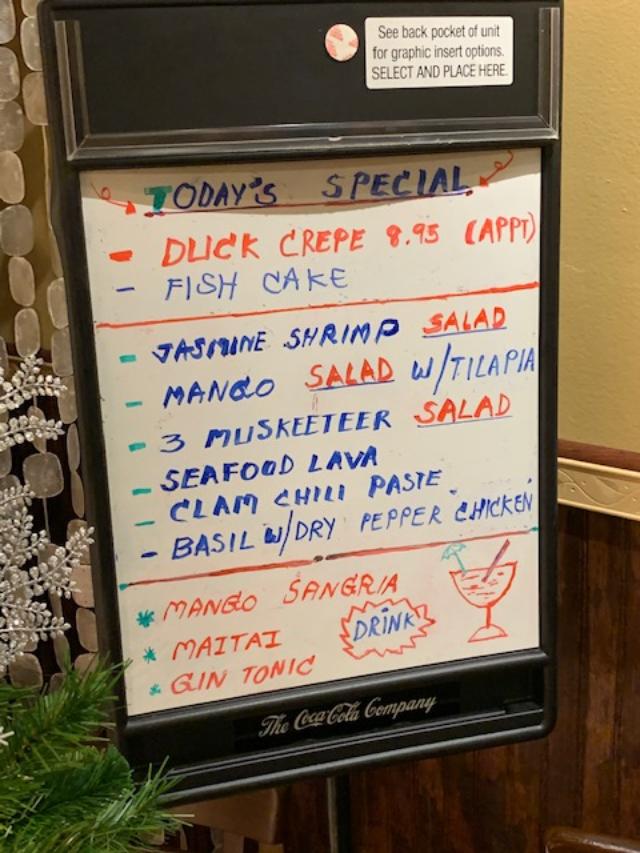 See back pocket of unit
for graphic insert options.
SELECT AND PLACE HERE.
TODAY'S SPECIAL
- DUCK CREPE 8.95 (APPT)
- FISH CAKE
- JASMINE SHRIMP SALAD
- MANGO SALAD W/TILAPIA
- 3 MUSKETEER SALAD
- SEAFOOD LAVA
- CLAM CHILI PASTE
- BASIL W/DRY PEPPER CHICKEN
* MANGO SANGRIA
* MAITAI
* GIN TONIC
DRINK
The Coca-Cola Company